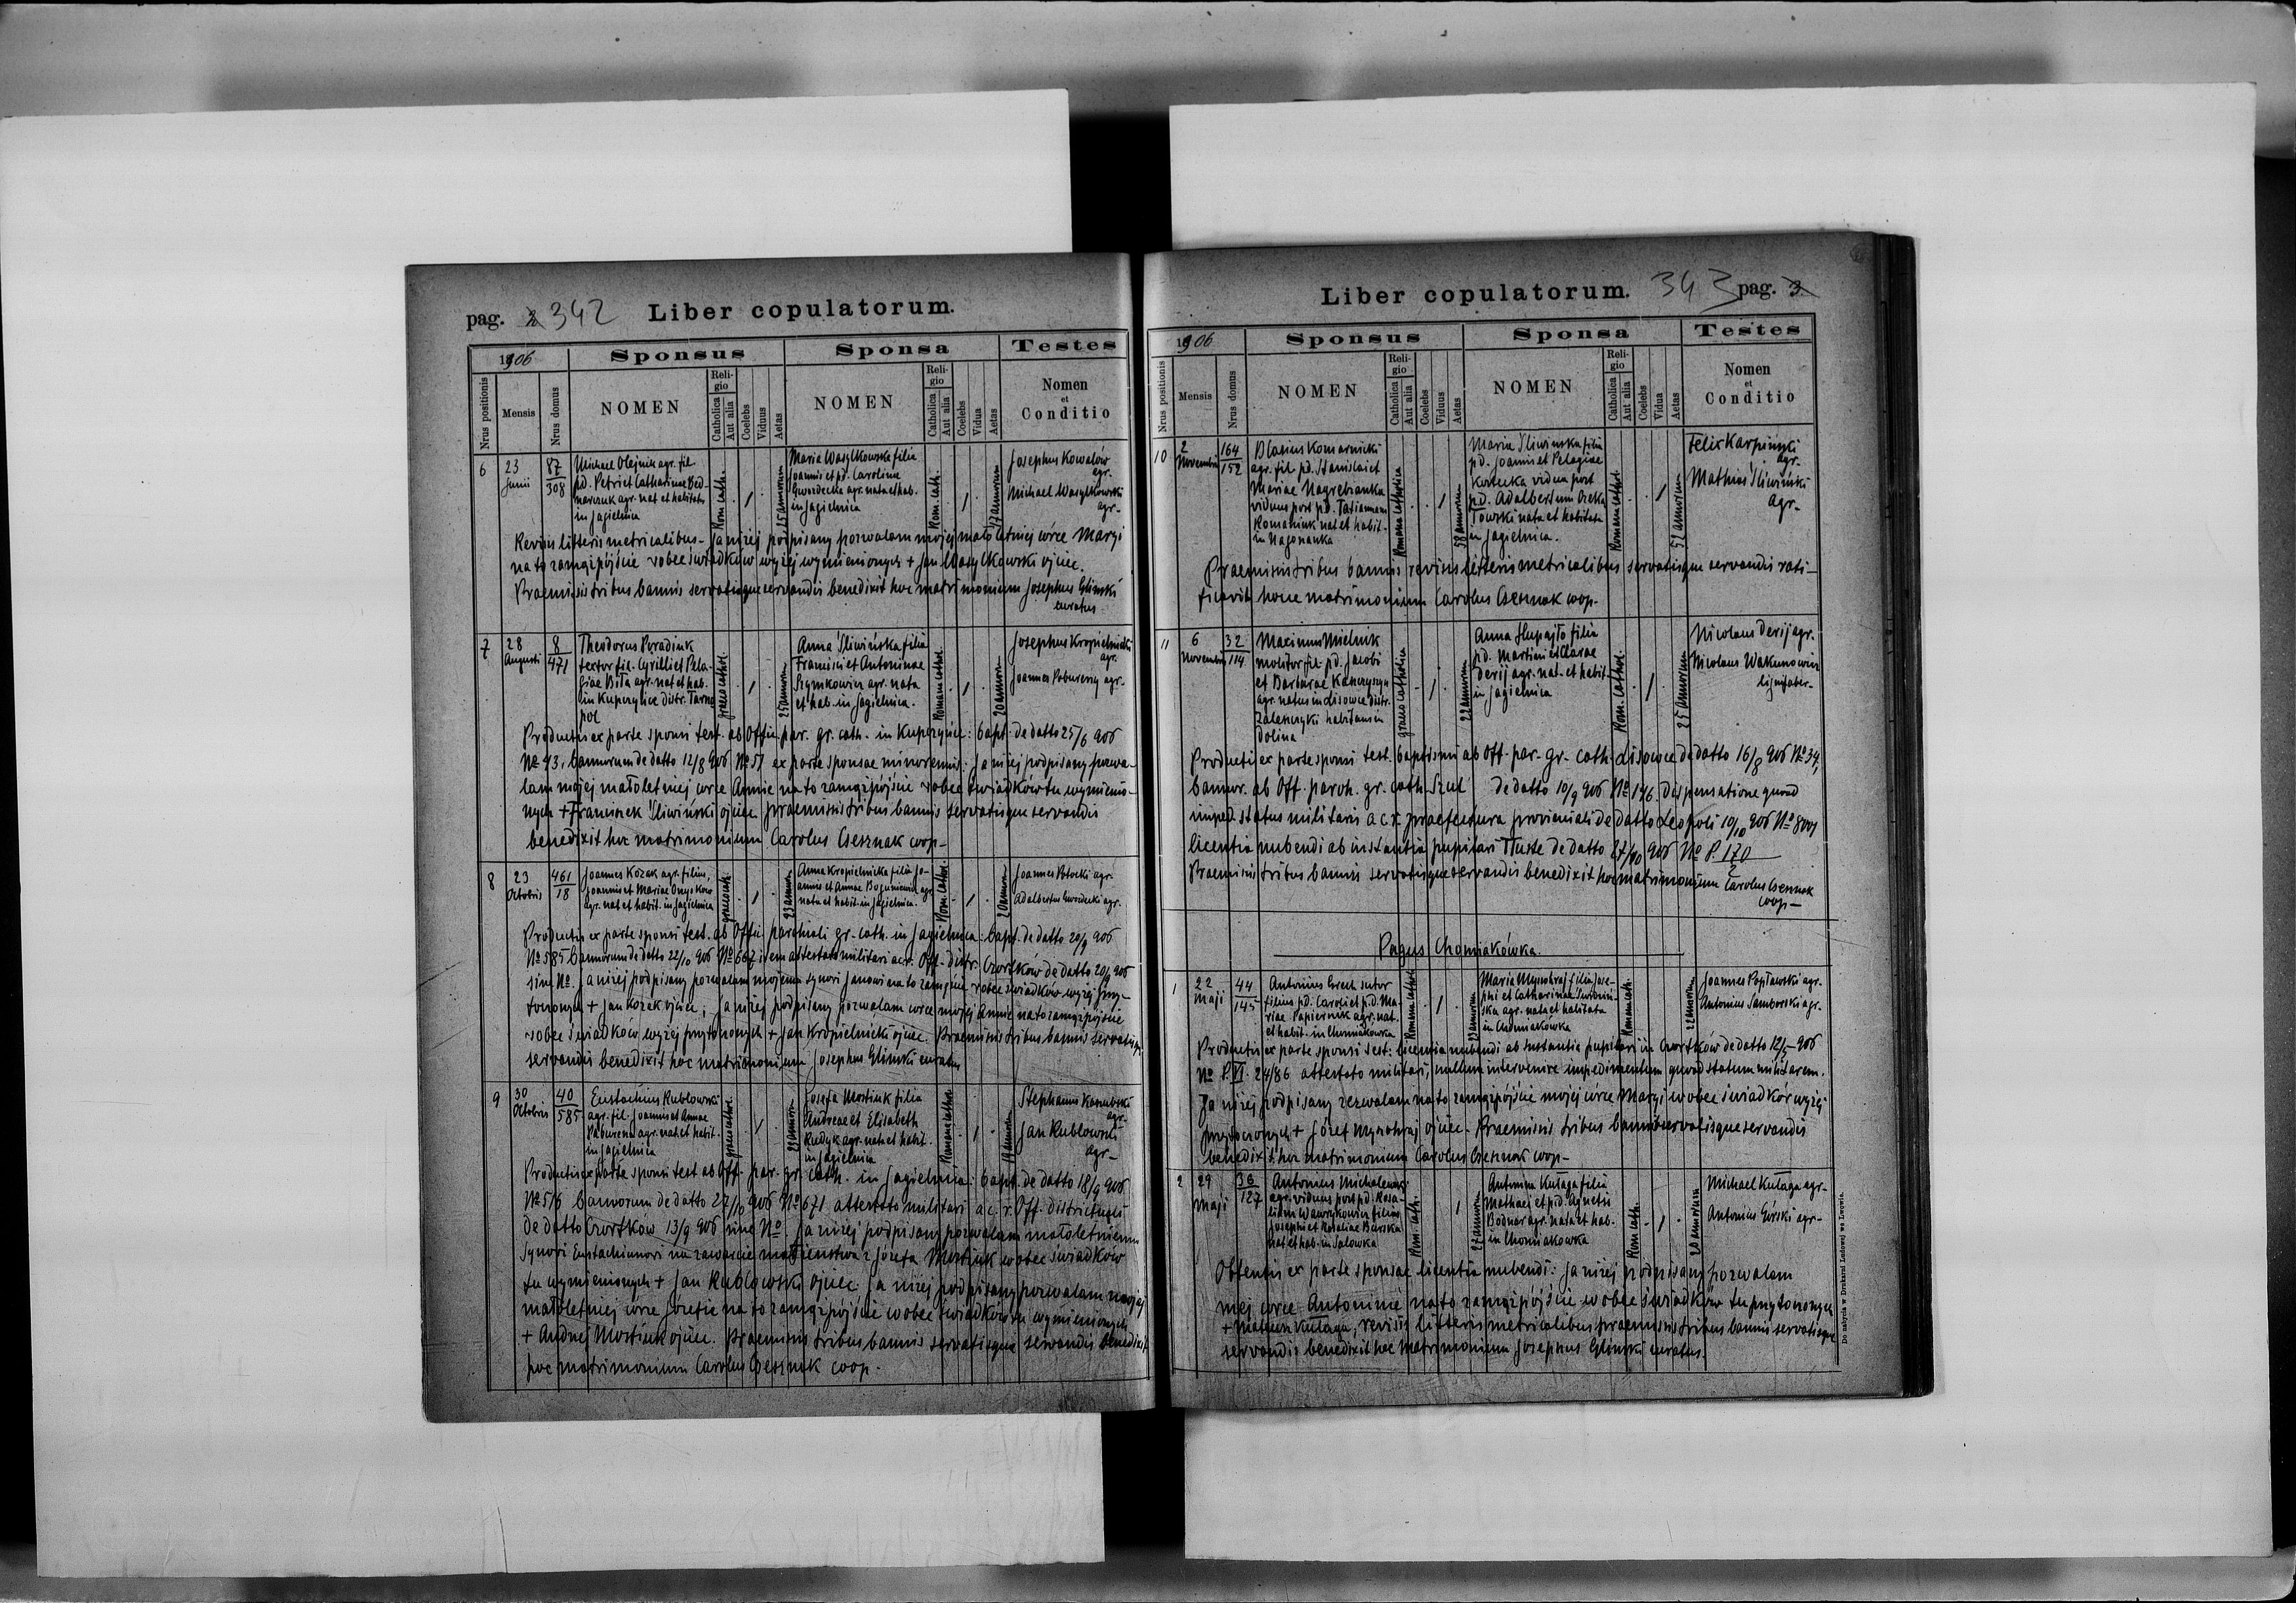 pag. 2 342 Liber copulatorum.
1906 Sponsus Sponsa Testes
Nrus positionis Mensis Nrus domus NOMEN Religio Catholica Aut alia Coelebs Viduus Aetas NOMEN Religio Catholica Aut alia Coelebs Vidua Aetas Nomen et Conditio
6 23 Junii 87 308
Michael Olejnik agr. fil.
pd. Petri et Catharinae Bed-
narczuk agr. nat et habitat
in Jagielnica
Rom. cath. 1 25 annorum
Maria Wasylkowska filia
Joannis et pd. Carolina
Gwozdecka agr. nata et hab.
in Jagielnica
Rom. cath. 1 17 annorum
Josephus Kowalów
agr.
Michael Wasylkowski
agr.
Revisis litteris metricalibus. Ja niżej podpisany pozwalam mojej małoletniej córce Maryi
na to zamążpójście wobec świadków wyżej wymienionych + Jan Wasylkowski ojciec.
Praemissis tribus bannis servatisque servandis benedixit hoc matrimonium Josephus Glinski
curatus
7 28 Augusti 8 471
Theodorus Poradiuk
textor fil. Cyrilli et Pela-
giae Biła agr. nat et hab.
in Kupczyńce distr. Tarno
pol
graeco cathol. 1 25 annorum
Anna Śliwińska filia
Francisci et Antoninae
Szymkowicz agr. nata
et hab. in Jagielnica.
Romana cathol. 1 20 annorum
Josephus Kropielnicki
agr.
Joannes Pobureny agr.
Productis ex parte sponsi test. ab Offic. par. gr. cath. in Kupczyńce: bapt. de datto 25/6 906
No 43, bannorum de datto 12/8 906 No 57 ex parte sponsae minorennis: Ja niżej podpisany pozwa-
lam mojej małoletniej córce Annie na to zamążpójście wobec świadków tu wymienio-
nych + Franciszek Śliwiński ojciec. Praemissis tribus bannis servatisque servandis
benedixit hoc matrimonium Carolus Csesznak coop.
8 23 Octobris 461 18
Joannes Kozak agr. filius,
Joannis et Mariae Onyskow
agr. nat et habit. in Jagielnica
graeco cath. 1 23 annorum
Anna Kropielnicka filia Jo-
annis et Annae Bogusiewicz agr.
nata et habit. in Jagielnica.
Rom. cathol. 1 20 annorum
Joannes Potocki agr.
Adalbertus Gwozdecki agr.
Productis ex parte sponsi test. ab Offic. parochiali gr. cath. in Jagielnica: bapt. de datto 20/9 906
No 585 bannorum de datto 22/10 906 No 667 item attestato militari a c. r. Off. distr. Czortków de datto 20/9 906
sine No. Ja niżej podpisany pozwalam mojemu synowi Janowi na to zawarcie wobec świadków wyżej przy-
toczonych + Jan Kozak ojciec; Ja niżej podpisany pozwalam córce mojej Annie na to zamążpójście
wobec świadków wyżej przytoczonych + Jan Kropielnicki ojciec. Praemissis tribus bannis servatisque
servandis benedixit hoc matrimonium Josephus Glinski curatus
9 30 Octobris 40 585
Eustachius Rublowski
agr. fil. Joannis et Annae
Paburena agr. nat et habit.
in Jagielnica
graeco cathol. 1 23 annorum
Josefa Mostiuk filia
Andreae et Elisabeth
Rudyk agr. nata et habit.
in Jagielnica
Romana cathol. 1 19 annorum
Stephanus Kasubski
agr.
Jan Rublowski
agr.
Productis ex parte sponsi test ab Off. par. gr. cath. in Jagielnica: bapt. de datto 18/9 906
No 576 bannorum de datto 27/10 906 No 671 attestato militari a c. r. Off. districtuali
de datto Czortków 13/9 906 sine No Ja niżej podpisany pozwalam małoletniemu
synowi Eustachiuszowi na zawarcie małżeństwa z Józefą Mostiuk wobec świadków
tu wymienionych + Jan Rublowski ojciec Ja niżej podpisany pozwalam mojej
małoletniej córce Józefie na to zamążpójście wobec świadków tu wymienionych
+ Andrzej Mostiuk ojciec. Praemissis tribus bannis servatisque servandis benedixit
hoc matrimonium Carolus Csesznak coop.
Liber copulatorum. 343 pag. 3
1906 Sponsus Sponsa Testes
Nrus positionis Mensis Nrus domus NOMEN Religio Catholica Aut alia Coelebs Viduus Aetas NOMEN Religio Catholica Aut alia Coelebs Vidua Aetas Nomen et Conditio
10 2 Novembris 164 152
Blasius Komarnicki
agr. fil. pd. Stanislai et
Mariae Nagrebianka
viduus post pd. Tatiannam
Romaniuk nat et habit.
in Nagorzanka
Romana catholica 1 58 annorum
Maria Sliwinska filia
pd. Joannis et Pelagiae
Kostecka vidua post
pd. Adalbertum
nata et habitata
in Jagielnica.
Romana cathol. 1 52 annorum
Felix Karpiński
agr.
Mathias Śliwiński
agr.
Praemissis tribus bannis revisis litteris metricalibus servatisque servandis rati-
ficavit hocce matrimonium Carolus Csesznak coop.
11 6 Novembris 32 114
Maximus Mielnik
molitor fil. pd. Jacobi
et Barbarae
agr. natus in Lisowce distr.
Zaleszczyki habitans in
Dolina
graeco catholica 1 22 annorum
Anna Słupajło filia
pd. Martini et Clarae
Derij agr. nat. et habit.
in Jagielnica
Rom. cathol. 1 25 annorum
Nicolaus Derij agr.
Nicolaus Wakunowicz
lignifaber.
Productis ex parte sponsi test. baptismi ab Off. par. gr. cath. Lisowce de datto 16/8 906 No 34,
bannor. ab Off. paroh. gr. cath. Szul de datto 10/9 906 No 196. dispensatione quoad
imped. status militaris a c. r. praefectura provinciali de datto Leopoli 10/10 906 No 8001
licentia nubendi ab instantia pupilari Tłuste de datto 27/10 906 No P. 170/2
Praemissis tribus bannis servatisque servandis benedixit hoc matrimonium Carolus Csesznak
coop.
Pagus Chomiakówka.
1 22 Maji 44 145
Antonius Grech sutor
filius pd. Caroli et pd. Ma-
riae Papiernik agr. nat.
et habit. in Chomiakowka
Romana cathol. 1 23 annorum
Maria Mynohraj filia Jose-
phi et Catharinae Swidnic-
ska agr. nata et habitata
in Chomiakówka
Romana cath. 1 22 annorum
Joannes Popławski agr.
Antonius Samborski agr.
Productis ex parte sponsi test: licentia nubendi ab instantia pupilari in Czortków de datto 12/5 906
No P. VI. 24/86 attestato militari, nullum intervenire impedimentum quoad statum militarem.
Ja niżej podpisany zezwalam na to zamążpójście mojej córce Maryi wobec świadków wyżej
przytoczonych + Józef Mynohraj ojciec. Praemissis tribus bannis servatisque servandis
benedixit hoc matrimonium Carolus Csesznak coop.
2 29 Maji 36 127
Antonius Michalewski
agr. viduus post pd. Rosa-
liam Wawrykowicz filius
Josephi et Rosaliae Burska
nat et hab. in Salowka
Rom. cath. 1 27 annorum
Antonina Kułaga filia
Mathaei et pd. Agnetis
Bodnar agr. nata et hab.
in Chomiakowka
Rom. cath. 1 20 annorum
Michael Kułaga agr.
Antonius Górski agr.
Obtentis ex parte sponsae licentia nubendi: Ja niżej podpisany pozwalam
mej córce Antoninie na to zamążpójście wobec świadków tu przytoczonych
+ Mateusz Kułaga, revisis litteris metricalibus praemissis tribus bannis servatisque
servandis benedixit hoc matrimonium Josephus Glinski curatus.
Do nabycia w Drukarni Ludowej we Lwowie.